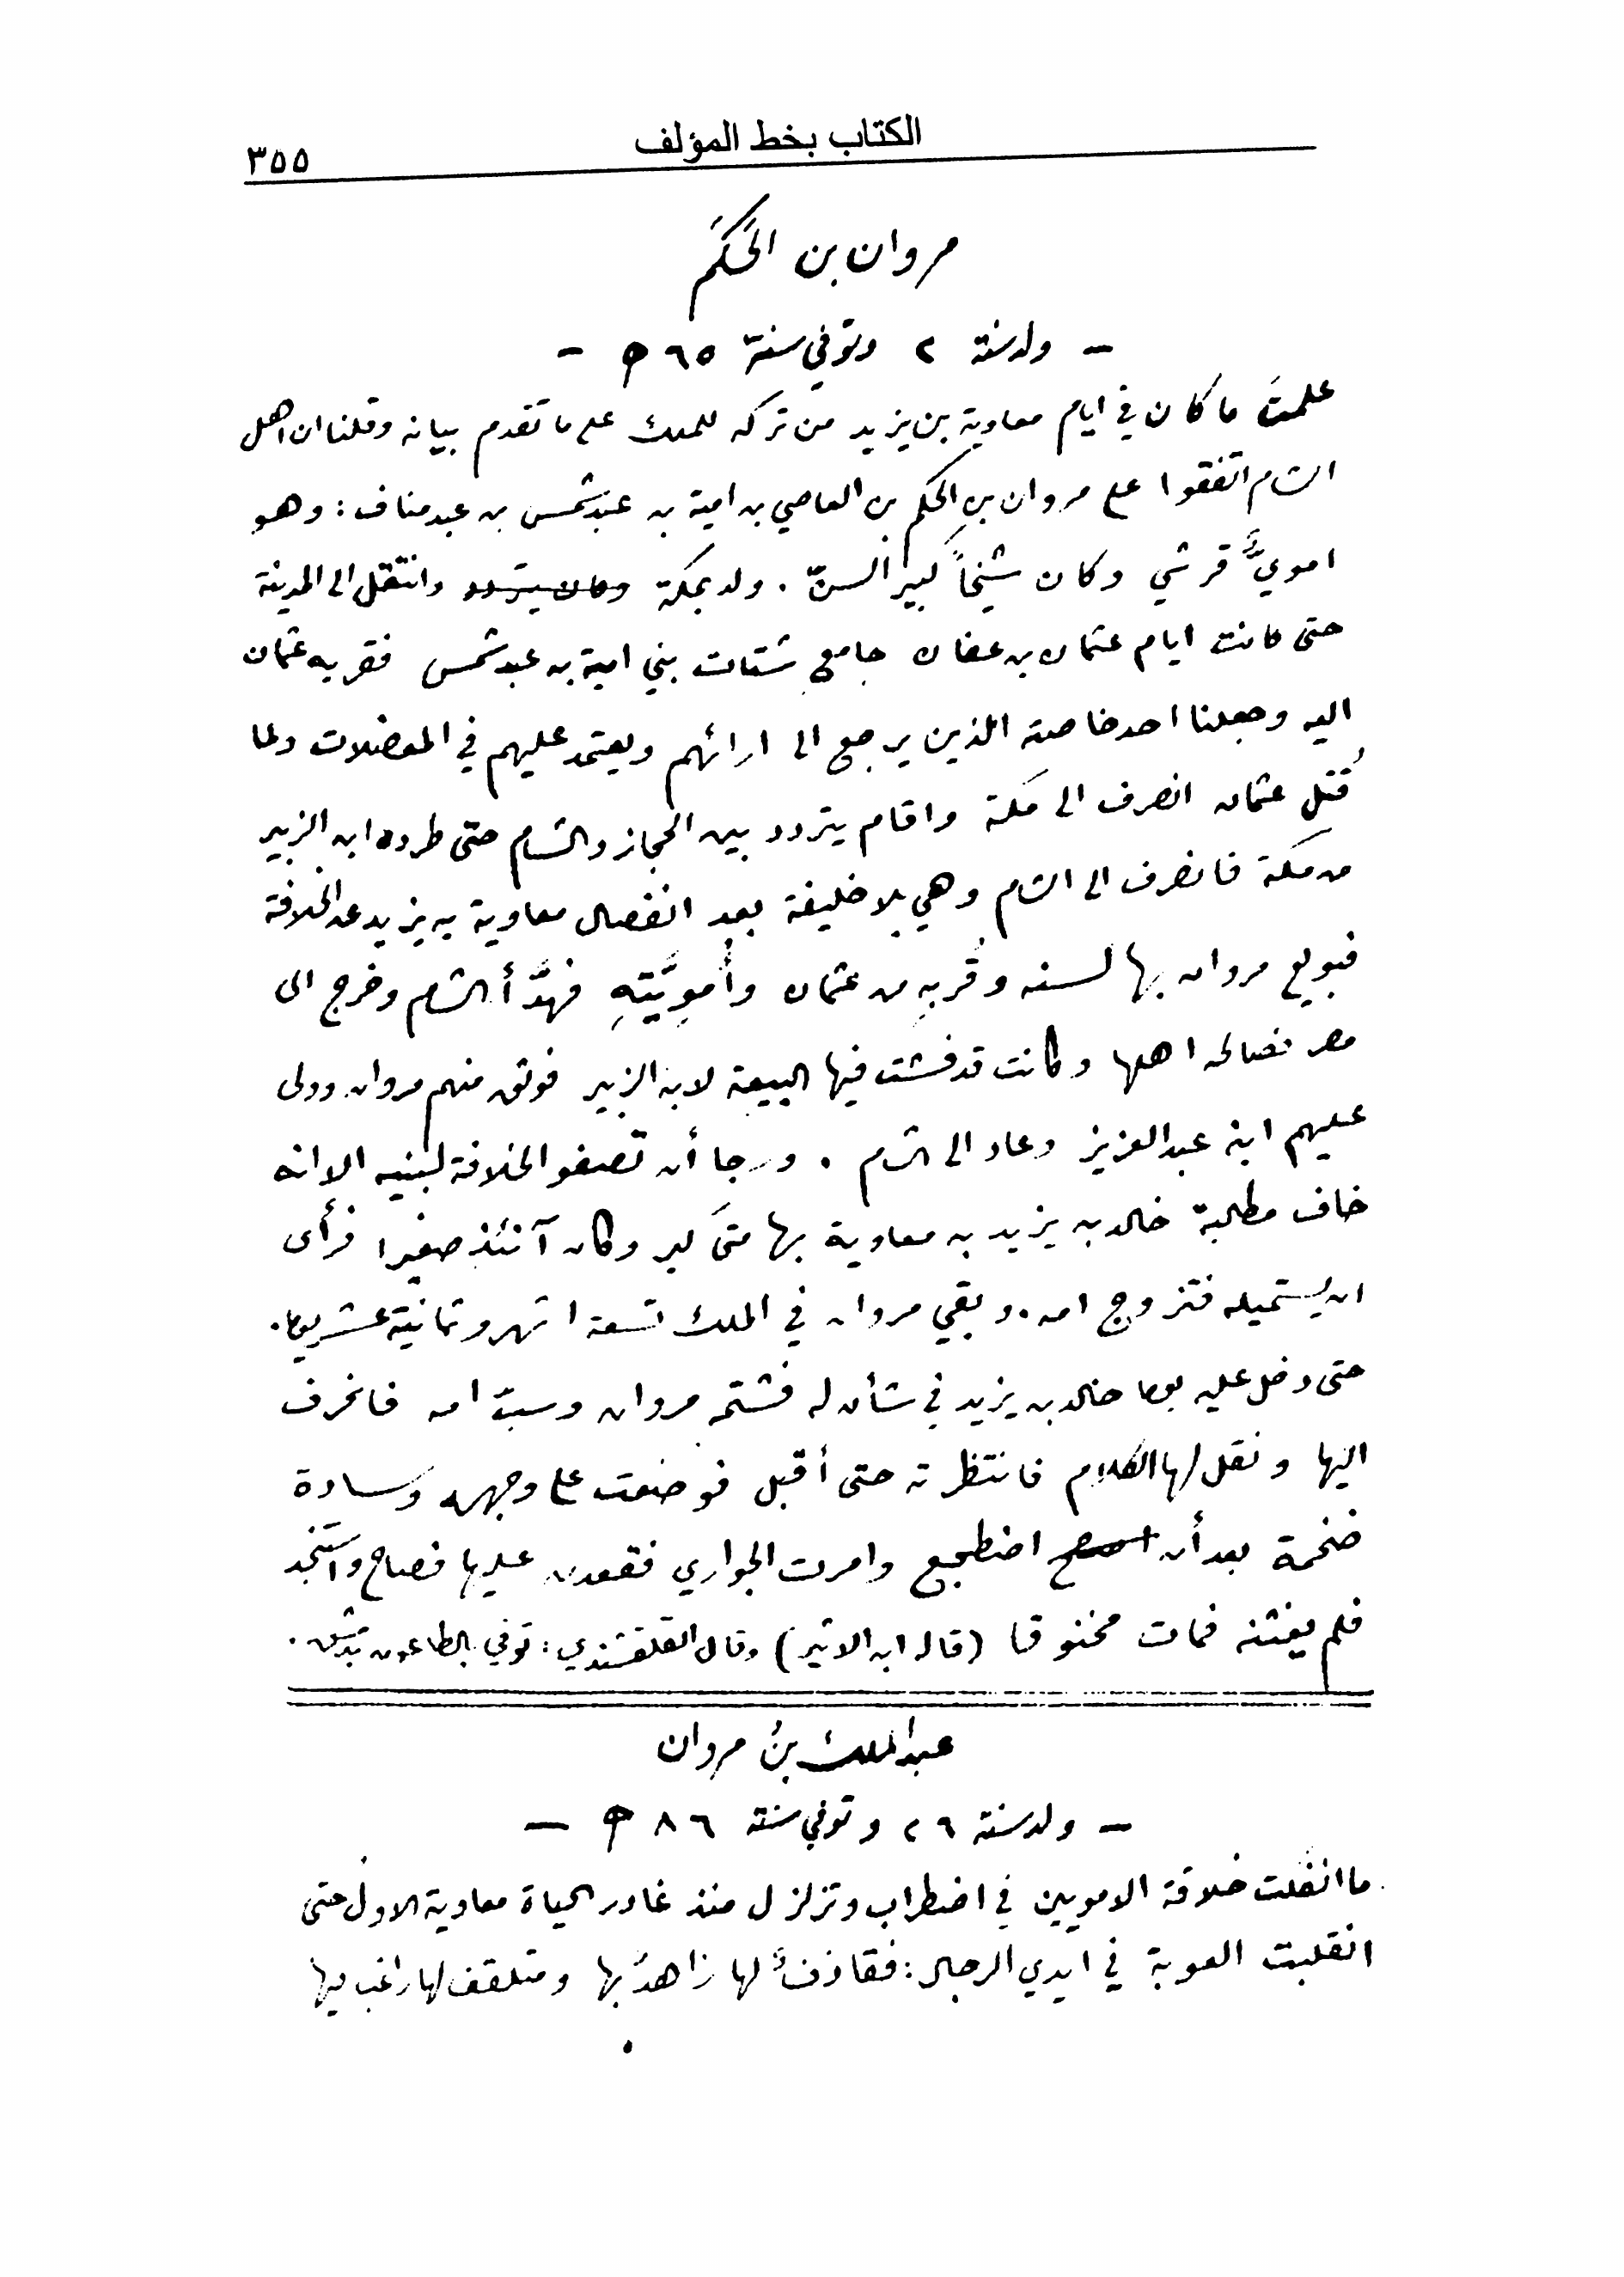 الكتاب بخط المؤلف
٣٥٥
مروان بن الحَكَم
- ولد سنة ٢ وتوفي سنة ٦٥ هـ -
علمتَ ما كان في ايام معاوية بن يزيد من تركه للملك على ما تقدم بيانه وقلنا ان اهل
الشام اتفقوا على مروان بنِ الحكم بن العاصي بن امية بن عبد شمس بن عبد مناف : وهو
امويٌّ قرشي وكان شيخاً كبير السنّ . ولد بمكة وانتقل الى المدينة
حتى كانت ايام عثمان بن عفان جامع شتات بني امية بن عبد شمس فقربه عثمان
اليه وجعلنا احد خاصته الذين يرجع الى ارائهم ويعتمد عليهم في المعضلات ولما
قُتل عثمان انصرف الى مكة واقام يتردد بين الحجاز والشام حتى طرده ابن الزبير
من مكة فانصرف الى الشام وهي بلا خليفة بعد انفصال معاوية بن يزيد عن الخلافة
فبويع مروان بها لسنه وقُربهِ من عثمان وأُمويَّتِهِ فهدَّأ الشام وخرج الى
مصر فصالحه اهلها وكانت قد فشت فيها البيعة لابن الزبير فوثق منهم مروان وولى
عليهم ابنه عبد العزيز وعاد الى الشام . ورجا أن تصفو الخلافة لبنيه الا انه
خاف مطالبة خالد بن يزيد بن معاوية بها متى كبر وكان آنئذ صغيرا فرأى
ان يستميله فتزوج امه . وبقي مروان في الملك تسعة اشهر وثمانية عشر يوما .
حتى دخل عليه يوما خالد بن يزيد في شأن له فشتمه مروان وسبّ امه فانحرف
اليها ونقل لها الكلام فانتظرته حتى أقبل فوضعت على وجهه وسادة
ضخمة بعد أن اضطجع وامرت الجواري فقعدن عليها فصاح واستنجد
فلم يغثنه فمات مخنوقا (قاله ابن الاثير) وقال القلقشندي : توفي بالطاعون بدمشق .
عبد الملك بنُ مروان
- ولد سنة ٢٦ وتوفي سنة ٨٦ هـ -
ما انفكت خلافة الامويين في اضطراب وتزلزل منذ غادر الحياة معاوية الاول حتى
انقلبت العوبة في ايدي الرجال : فقاذفٌ لها زاهدٌ بها ومتلقف لها راغب فيها